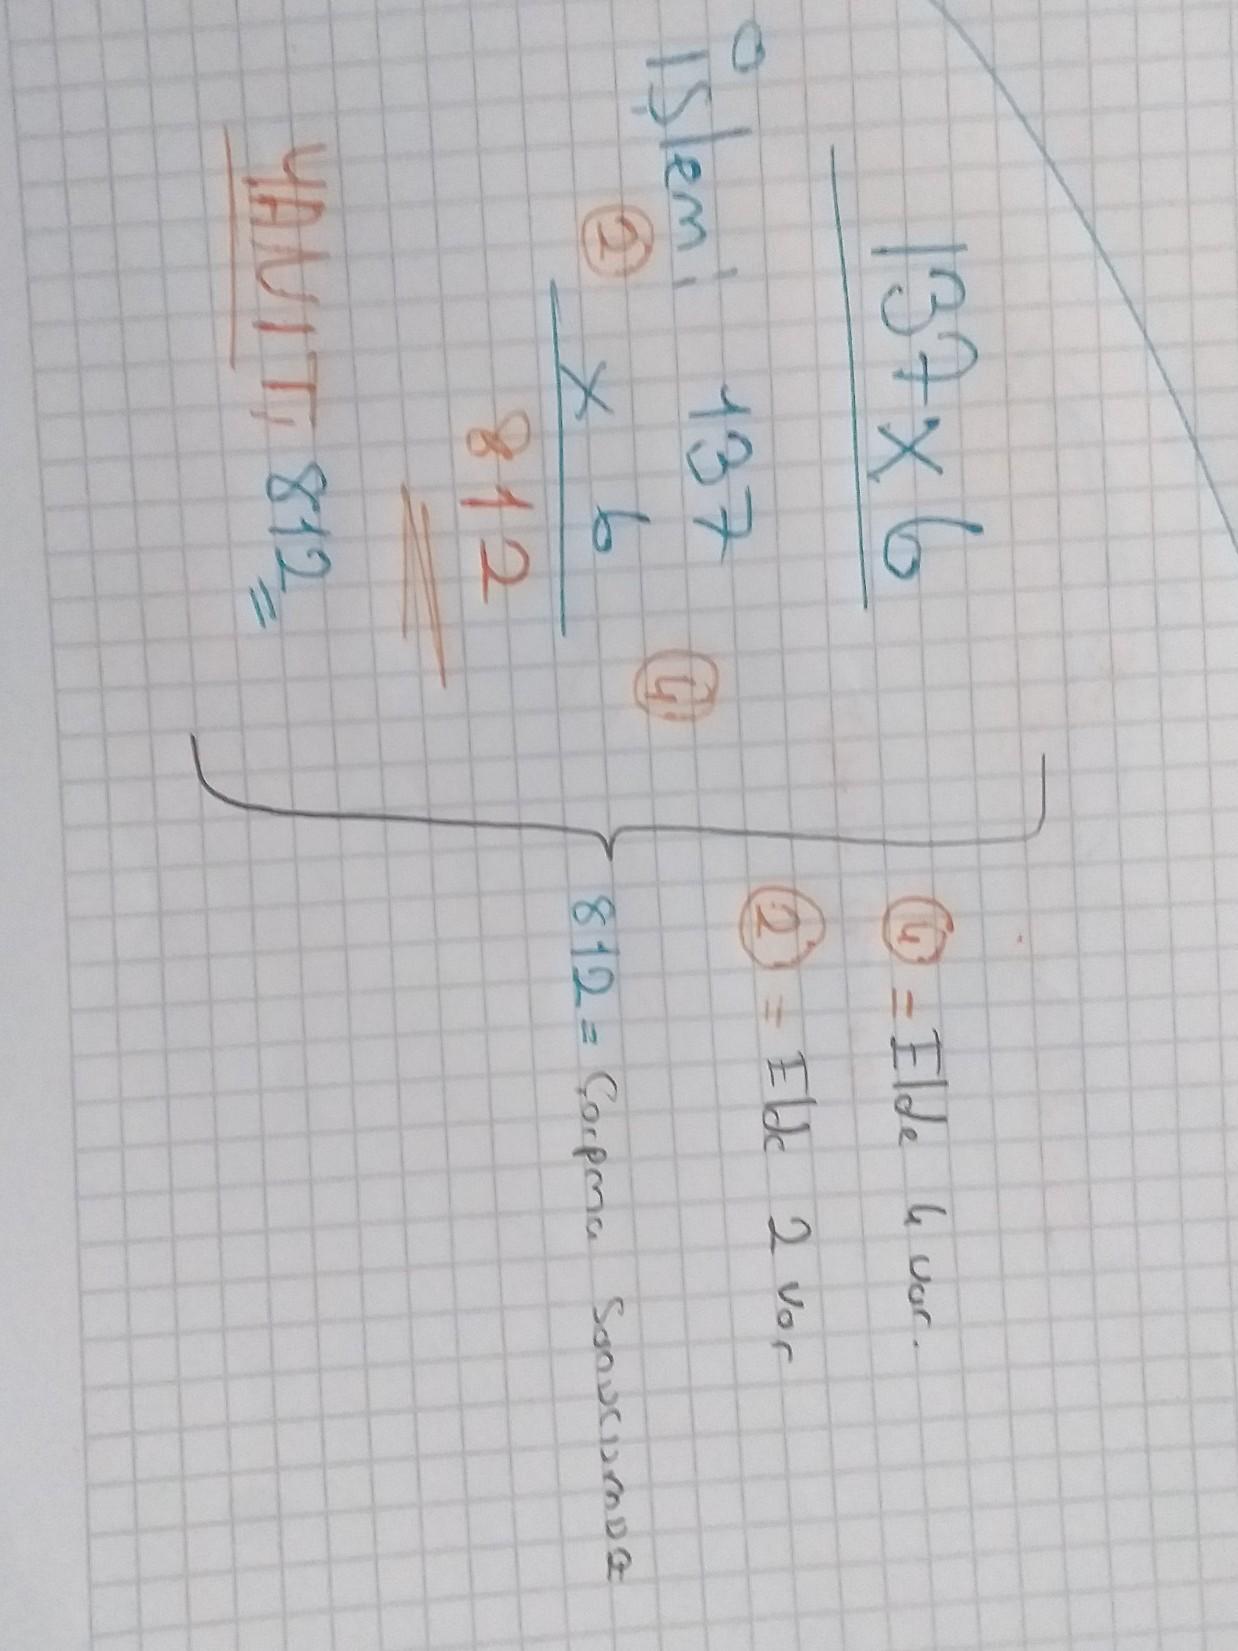 137 x 6
İşlem: 137
④
② x 6
812
YANIT: 812 =
④ = Elde 4 var.
② = Elde 2 var
812 = Çarpma Sonucumuz